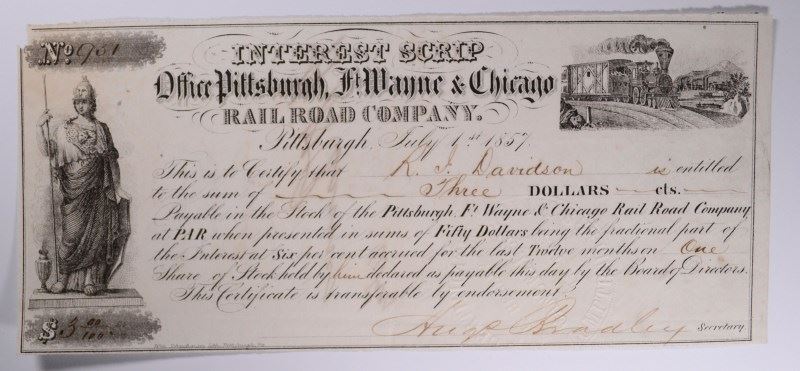 No 951
INTEREST SCRIP
Office Pittsburgh, Ft. Wayne & Chicago
RAIL ROAD COMPANY.
Pittsburgh, July 1st 1857.
This is to Certify that R. T. Davidson is entitled
to the sum of Three DOLLARS cts.
Payable in the Stock of the Pittsburgh, Ft Wayne & Chicago Rail Road Company
at PAR when presented in sums of Fifty Dollars being the fractional part of
the Interest at Six per cent accrued for the last Twelve months on One
Share of Stock held by him declared as payable this day by the Board of Directors.
This Certificate is transferable by endorsement.
$3 00/100
Hugh Bradley Secretary